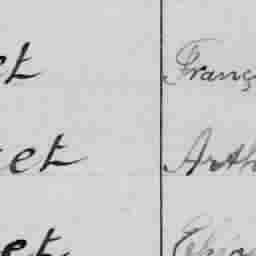 et Franç
et Arth
et